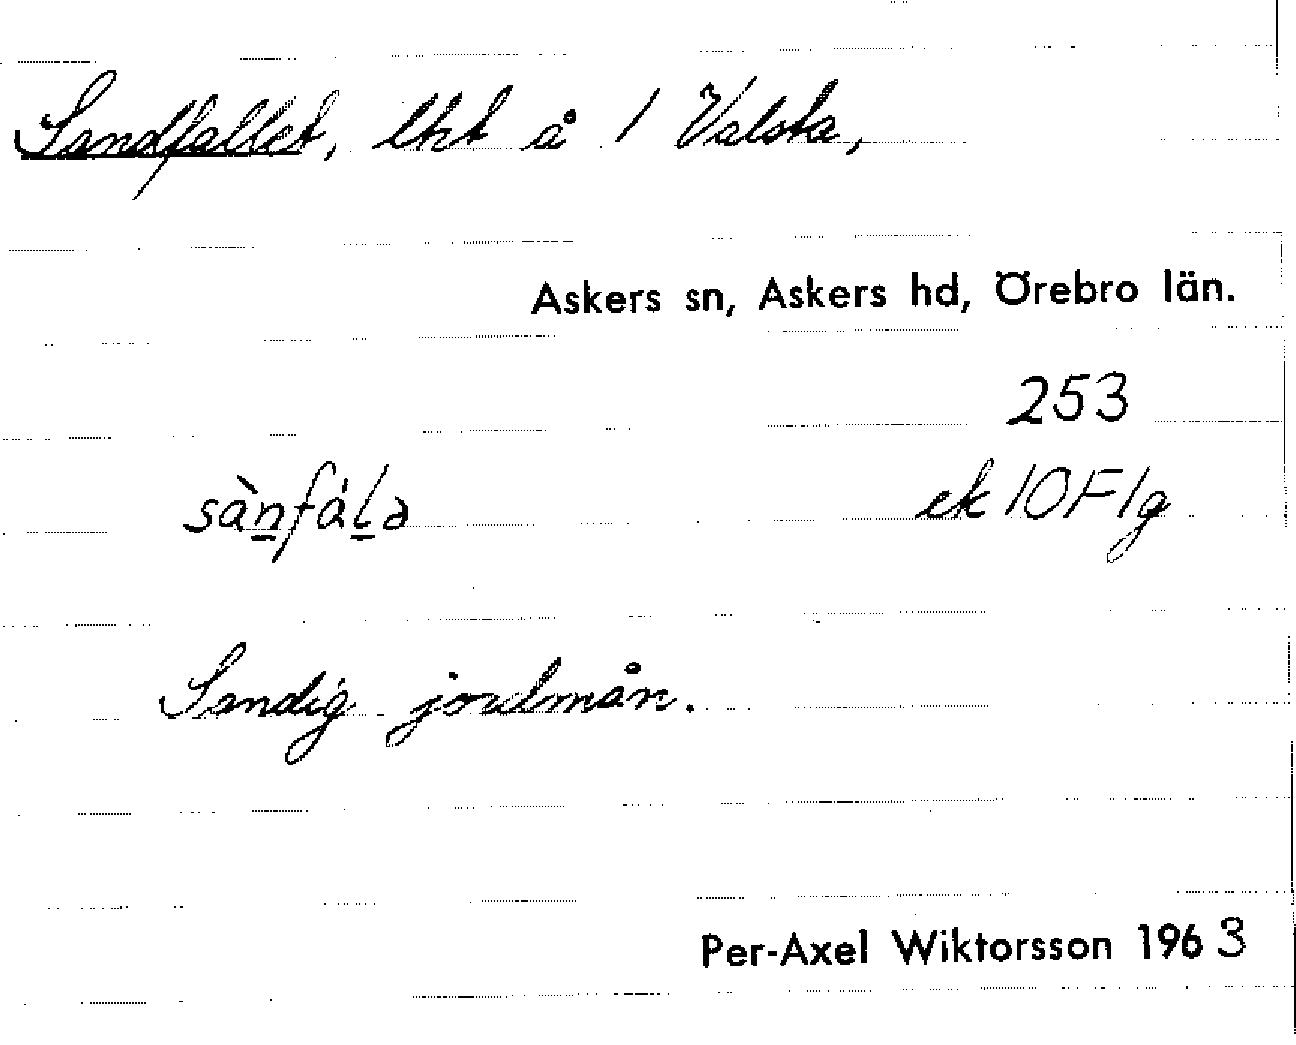 Sandfallet, lht å 1 Valsta,
Askers sn, Askers hd, Örebro län.
253
sàn̲fáḻa ek 10F1g
Sandig jordmån.
Per-Axel Wiktorsson 1963